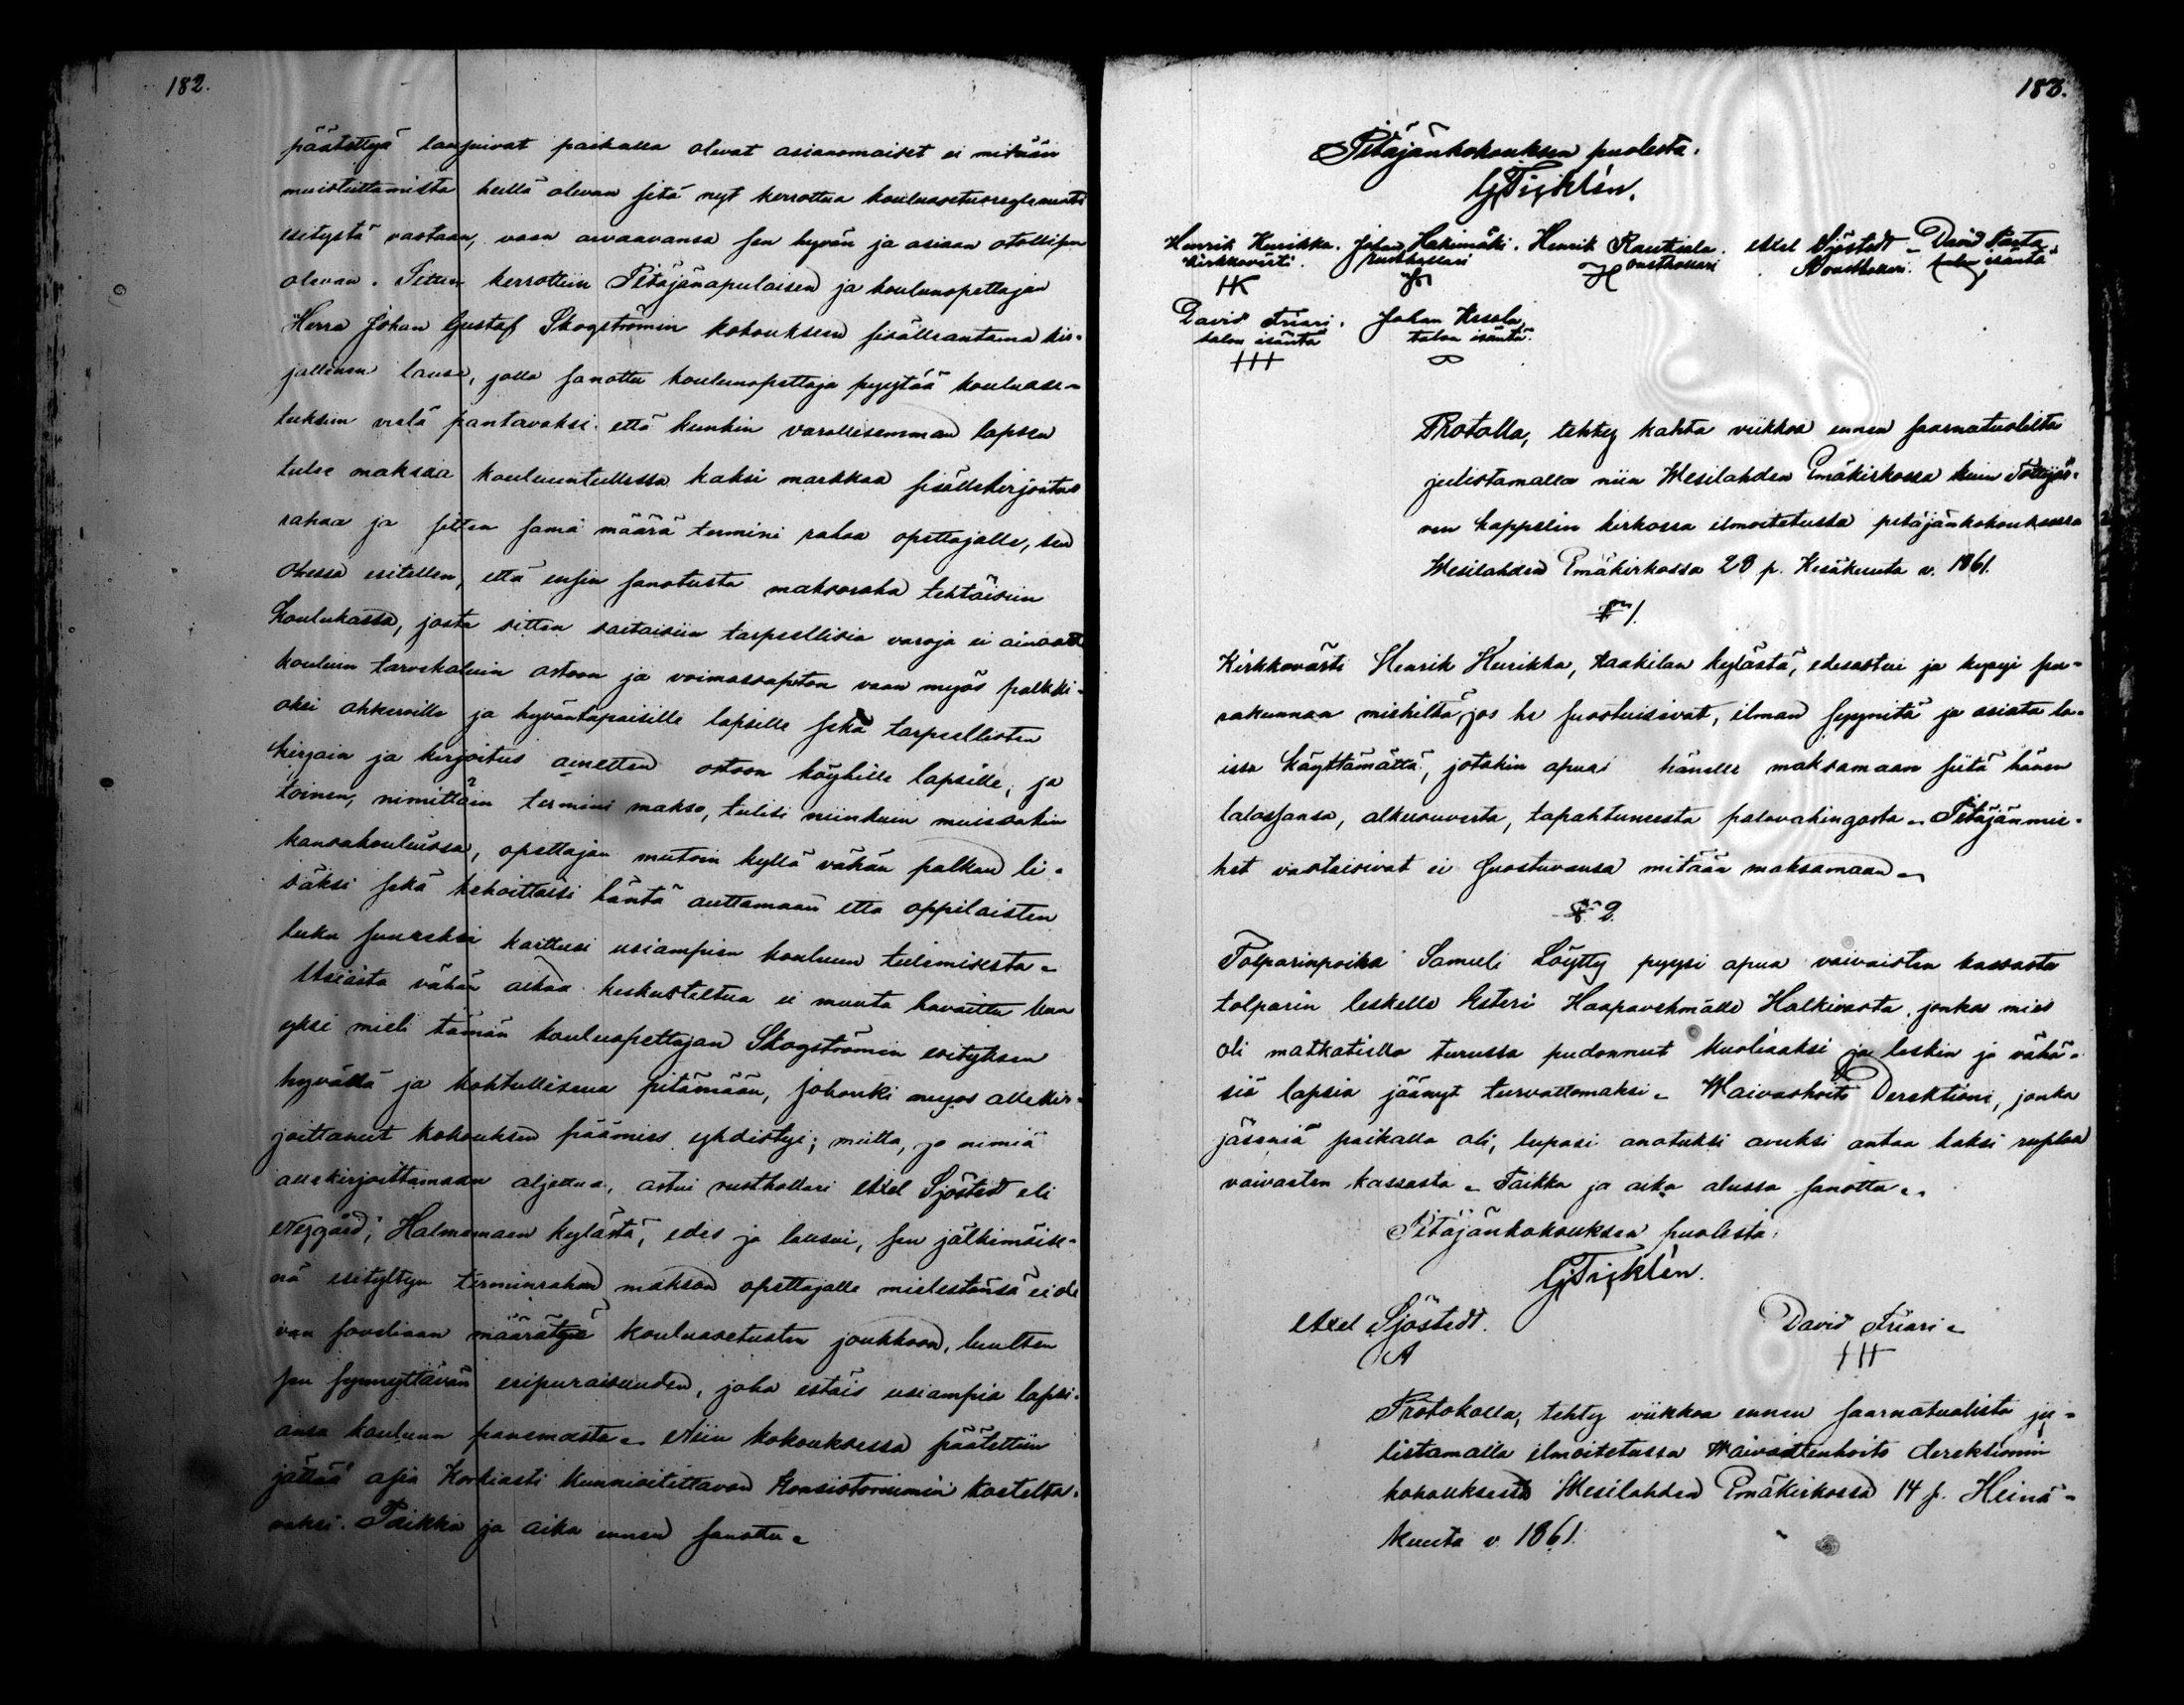 182.
päätettyä lausuivat paikalla olevat asianomaiset ei mitään
muistuttamista heillä olevan sitä nyt kerrottua kouluasetusreglementi
esitystä vastaan, vaan arvaavansa sen hyvän ja asiaan otollisen
olevan. Sitten kerrottiin Pitäjänapulaisen ja koulunopettajan
Herra Johan Gustaf Skogströmin kokoukseen sisälleantama kir-
jallinen lause, jolla sanottu koulunopettaja pyytää kouluase-
tuksiin vielä pantavaksi että kunkin varallisemman lapsen
tulee maksaa kouluuntullessa kaksi markkaa sisällekirjoitus
rahaa ja sitten sama määrä termini rahaa opettajalle, sen
ohessa esitellen, että ensin sanotusta maksoraha tehtäisiin
Koulukassa, josta sitten saataisiin tarpeellisia varoja ei ainoast
kouluun tarvekaluin ostoon ja voimassapiton vaan myös palkki-
oksi ahkeroille ja hyväntapaisille lapsille sekä tarpeellisten
kirjain ja kirjoitus ainetten ostoon köyhille lapsille, ja
toinen, nimittäin termini makso, tulisi niinkuin muissakin
kansakouluissa, opettajan mutoin kyllä vähän palkan li-
säksi sekä kehoittaisi häntä auttamaan että oppilaisten
luku suureksi karttusi usiampien kouluun tulemisesta.
Asiasta vähän aikaa keskusteltua ei muuta havaittu kuin
yksi mieli tämän kouluopettajan Skogströmin esityksen
hyvällä ja kohtullisena pitämään, johonki myös allekir-
joittanut kokouksen päämies yhdistyi; mutta, jo nimiä
allekirjoittamaan aljettua, astui rusthollari Axel Sjöstedt eli
Nygård, Halmemaan kylästä, edes ja lausui, sen jälkimäise-
nä esityltyn terminrahan makson opettajalle mielestänsä ei ole
van soveliaan määrätyä kouluasetusten joukkoon, luulten
sen synnyttävän eripuraisuuden, joka estäis usiampia lapsi-
ansa kouluun panemasta. Niin kokouksessa päätettiin
jättää asia Korkiasti Kunnioitettavan Konsistoriumin kosteltta-
vaksi. Paikka ja aika ennen sanottu.
183.
Pitäjänkokouksen puolesta.
G. Ticklén.
Henrik Kurikka. Johan Hakimäki. Henrik Rautiala. Axel Sjöstedt. David Parta
kirkkovärti. rusthollari rusthollari Rusthollari. talon isäntä
HK H A
David Friari. Johan Uusola
talon isäntä talon isäntä.
Protolla, tehty kahta viikkoa ennen saarnatuolilta
julistamalla niin Wesilahden Emäkirkossa kuin Tottijär-
ven kappelin kirkossa ilmoitetussa pitäjänkokouksessa
Wesilahden Emäkirkossa 23 p. Kesäkuuta v. 1861.
§ 1.
Kirkkovärti Henrik Kurikka, Kaakilan kylästä, edesastui ja kysyi seu-
rakunnan miehiltä, jos he suostuisivat, ilman syynitä ja asiata la-
issa käyttämättä, jotakin apuri hänelle maksamaan siitä hänen
talossansa, alkusuvesta, tapahtuneesta palovahingosta. Pitäjänmie-
het vastaisivat ei suostuvansa mitään maksamaan.
§ 2.
Tolparinpoika Samuli Löytty pyysi apua vaivaisten kassasta
tolparin leskelle Esteri Haapavehmälle Halkivasta, jonka mies
oli matkatiella turussa pudonnut kuoliaaksi ja leskin ja vähä-
siä lapsia jäänyt turvattomaksi. Waivashoito Derektioni, jonka
jäseniä paikalla oli, lupasi anotuksi avuksi antaa kaksi ruplaa
vaivasten kassasta. Paikka ja aika alussa sanottu.
Pitäjänkokouksen puolesta.
G. Ticklén.
Axel Sjöstedt. David Friari.
A
Protokolla, tehty viikkoa ennen saarnatuolista ju-
listamalla ilmoitetussa Waivastenhoito derektionin
kokouksesta Wesilahden Emäkirkossa 14 p. Heinä-
kuuta v. 1861.